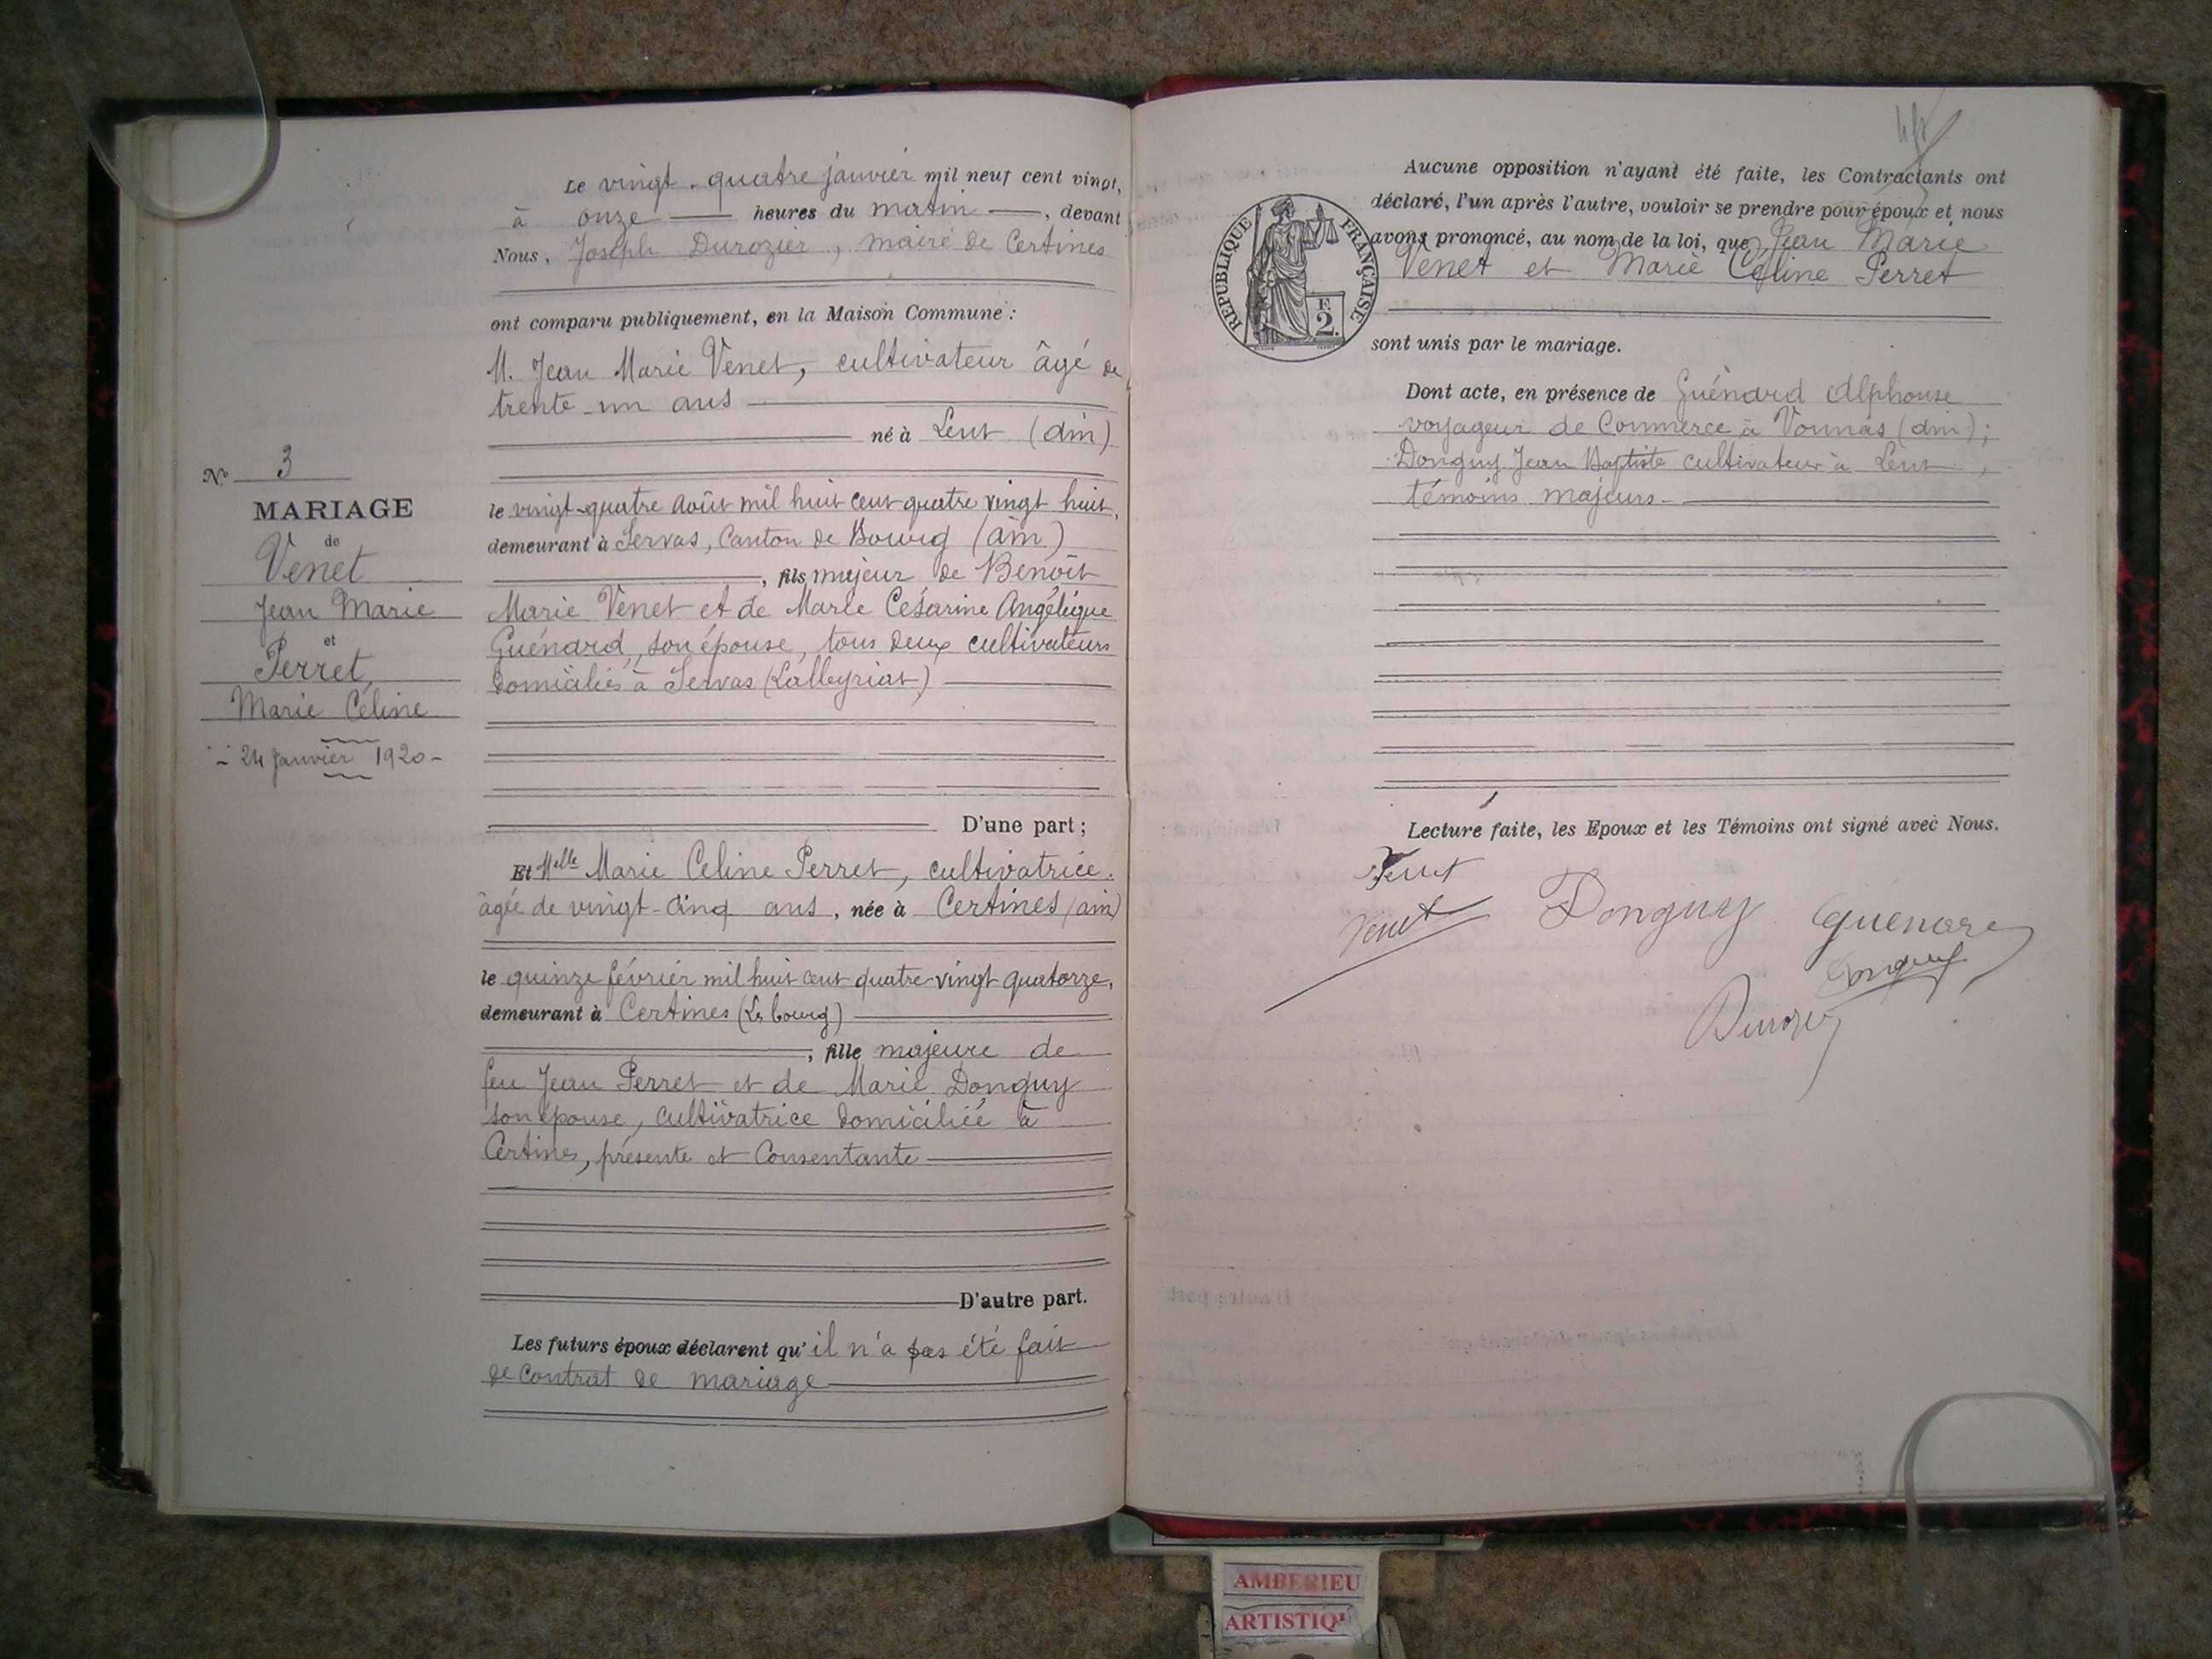 Le vingt-quatre janvier mil neuf cent vingt,
à onze heures du matin, devant
Nous, Joseph Durozier, maire de Certines
ont comparu publiquement, en la Maison Commune :
M. Jean Marie Venet, cultivateur âgé de
trente-un ans
né à Lent (ain)
le vingt-quatre Août mil huit cent quatre vingt huit,
demeurant à Servas, Canton de Bourg (ain)
, fils majeur de Benoît
Marie Venet et de Marie Césarine Angélique
Guénard, son épouse, tous deux cultivateurs
domiciliés à Servas (Lalleyriat)
D'une part ;
Nº 3
MARIAGE
de
Venet
Jean Marie
et
Perret,
Marie Céline
- 24 Janvier 1920 -
Et Melle Marie Celine Perret, cultivatrice.
âgée de vingt-cinq ans, née à Certines (ain)
le quinze février mil huit cent quatre-vingt quatorze,
demeurant à Certines (Le bourg)
, fille majeure de
feu Jean Perret et de Marie Donguy
son épouse, cultivatrice domiciliée à
Certines, présente et Consentante
D'autre part.
Les futurs époux déclarent qu'il n'a pas été fait
de Contrat de mariage
Aucune opposition n'ayant été faite, les Contractants ont
déclaré, l'un après l'autre, vouloir se prendre pour époux et nous
avons prononcé, au nom de la loi, que Jean Marie
Venet et Marie Céline Perret
RÉPUBLIQUE FRANÇAISE
F.
2.
sont unis par le mariage.
Dont acte, en présence de Guénard Alphonse
voyageur de Commerce à Vonnas (ain) ;
Donguy Jean Baptiste cultivateur à Lent,
témoins majeurs.
Lecture faite, les Epoux et les Témoins ont signé avec Nous.
Perret
Venet Donguy Guenard
Donguy
Durozier
AMBERIEU
ARTISTIQ